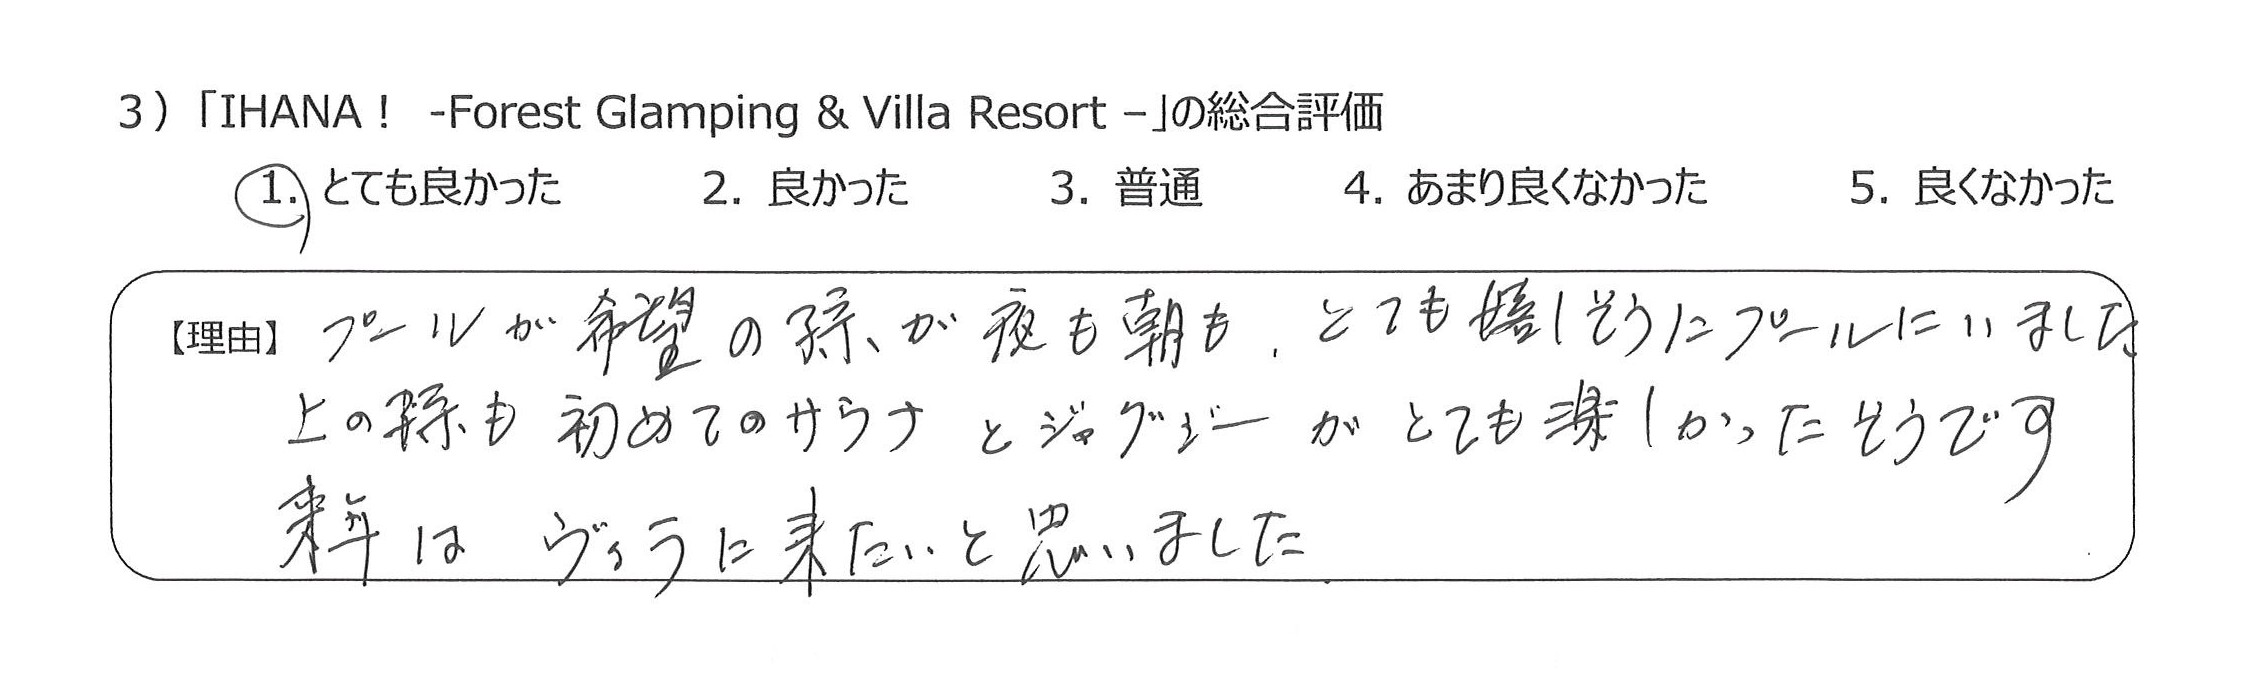 3）「IHANA！ -Forest Glamping & Villa Resort –」の総合評価
1. とても良かった 2. 良かった 3. 普通 4. あまり良くなかった 5. 良くなかった
【理由】 プールが希望の孫が夜も朝も、とても嬉しそうにプールにいました
上の孫も初めてのサウナとジャグジーがとても楽しかったそうです
来年はヴィラに来たいと思いました